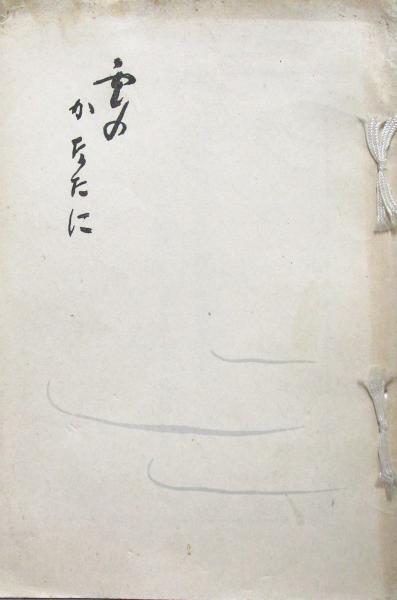 雲の
かなたに